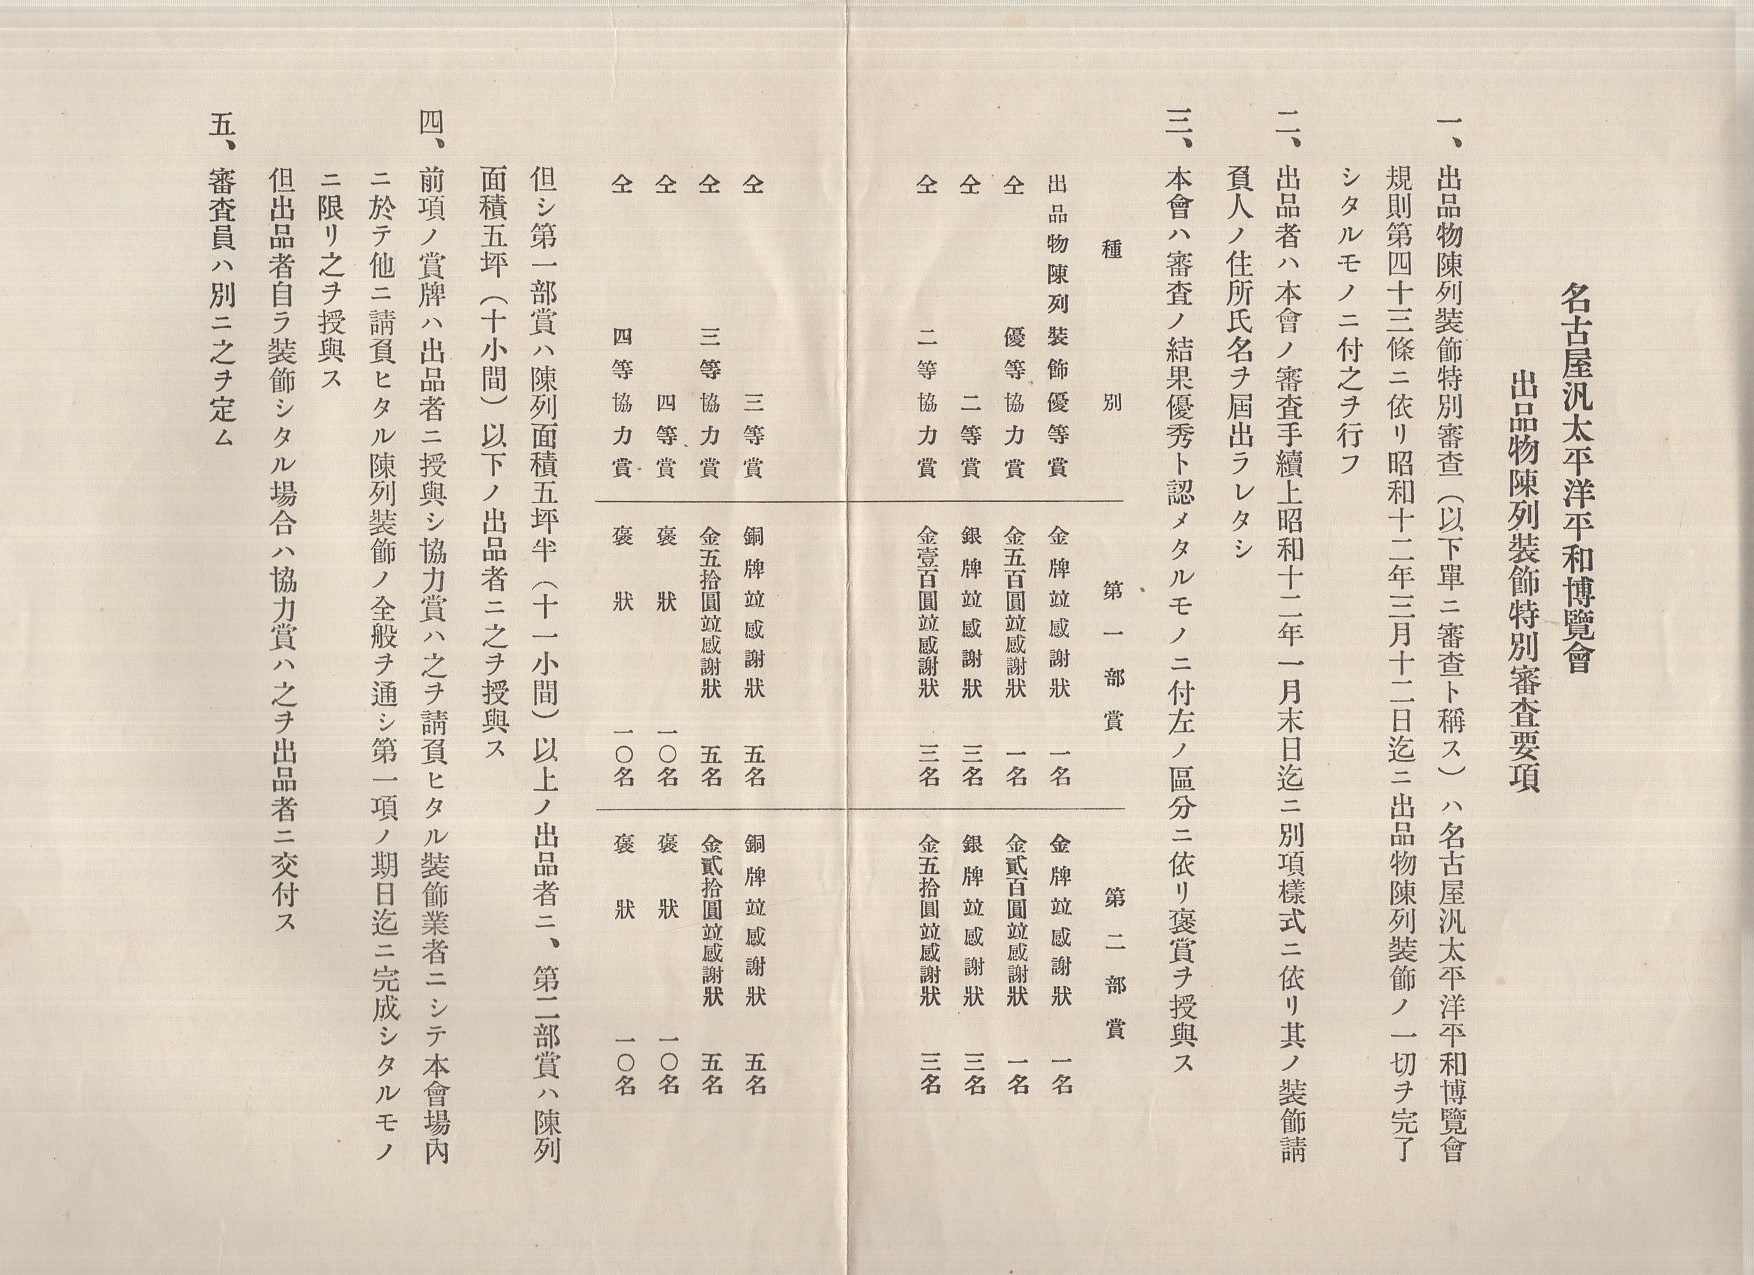 名古屋汎太平洋平和博覽會
出品物陳列裝飾特別審査要項
一、出品物陳列裝飾特別審査（以下單ニ審査ト稱ス）ハ名古屋汎太平洋平和博覽會
規則第四十三條ニ依リ昭和十二年三月十二日迄ニ出品物陳列裝飾ノ一切ヲ完了
シタルモノニ付之ヲ行フ
二、出品者ハ本會ノ審査手續上昭和十二年一月末日迄ニ別項樣式ニ依リ其ノ裝飾請
負人ノ住所氏名ヲ屆出ラレタシ
三、本會ハ審査ノ結果優秀ト認メタルモノニ付左ノ區分ニ依リ褒賞ヲ授與ス
種別 第一部賞 第二部賞
出品物陳列裝飾優等賞 金牌竝感謝狀 一名 金牌竝感謝狀 一名
仝 優等協力賞 金五百圓竝感謝狀 一名 金貳百圓竝感謝狀 一名
仝 二等賞 銀牌竝感謝狀 三名 銀牌竝感謝狀 三名
仝 二等協力賞 金壹百圓竝感謝狀 三名 金五拾圓竝感謝狀 三名
仝 三等賞 銅牌竝感謝狀 五名 銅牌竝感謝狀 五名
仝 三等協力賞 金五拾圓竝感謝狀 五名 金貳拾圓竝感謝狀 五名
仝 四等賞 褒狀 一〇名 褒狀 一〇名
仝 四等協力賞 褒狀 一〇名 褒狀 一〇名
但シ第一部賞ハ陳列面積五坪半（十一小間）以上ノ出品者ニ、第二部賞ハ陳列
面積五坪（十小間）以下ノ出品者ニ之ヲ授與ス
四、前項ノ賞牌ハ出品者ニ授與シ協力賞ハ之ヲ請負ヒタル裝飾業者ニシテ本會場內
ニ於テ他ニ請負ヒタル陳列裝飾ノ全般ヲ通シ第一項ノ期日迄ニ完成シタルモノ
ニ限リ之ヲ授與ス
但出品者自ラ裝飾シタル場合ハ協力賞ハ之ヲ出品者ニ交付ス
五、審査員ハ別ニ之ヲ定ム